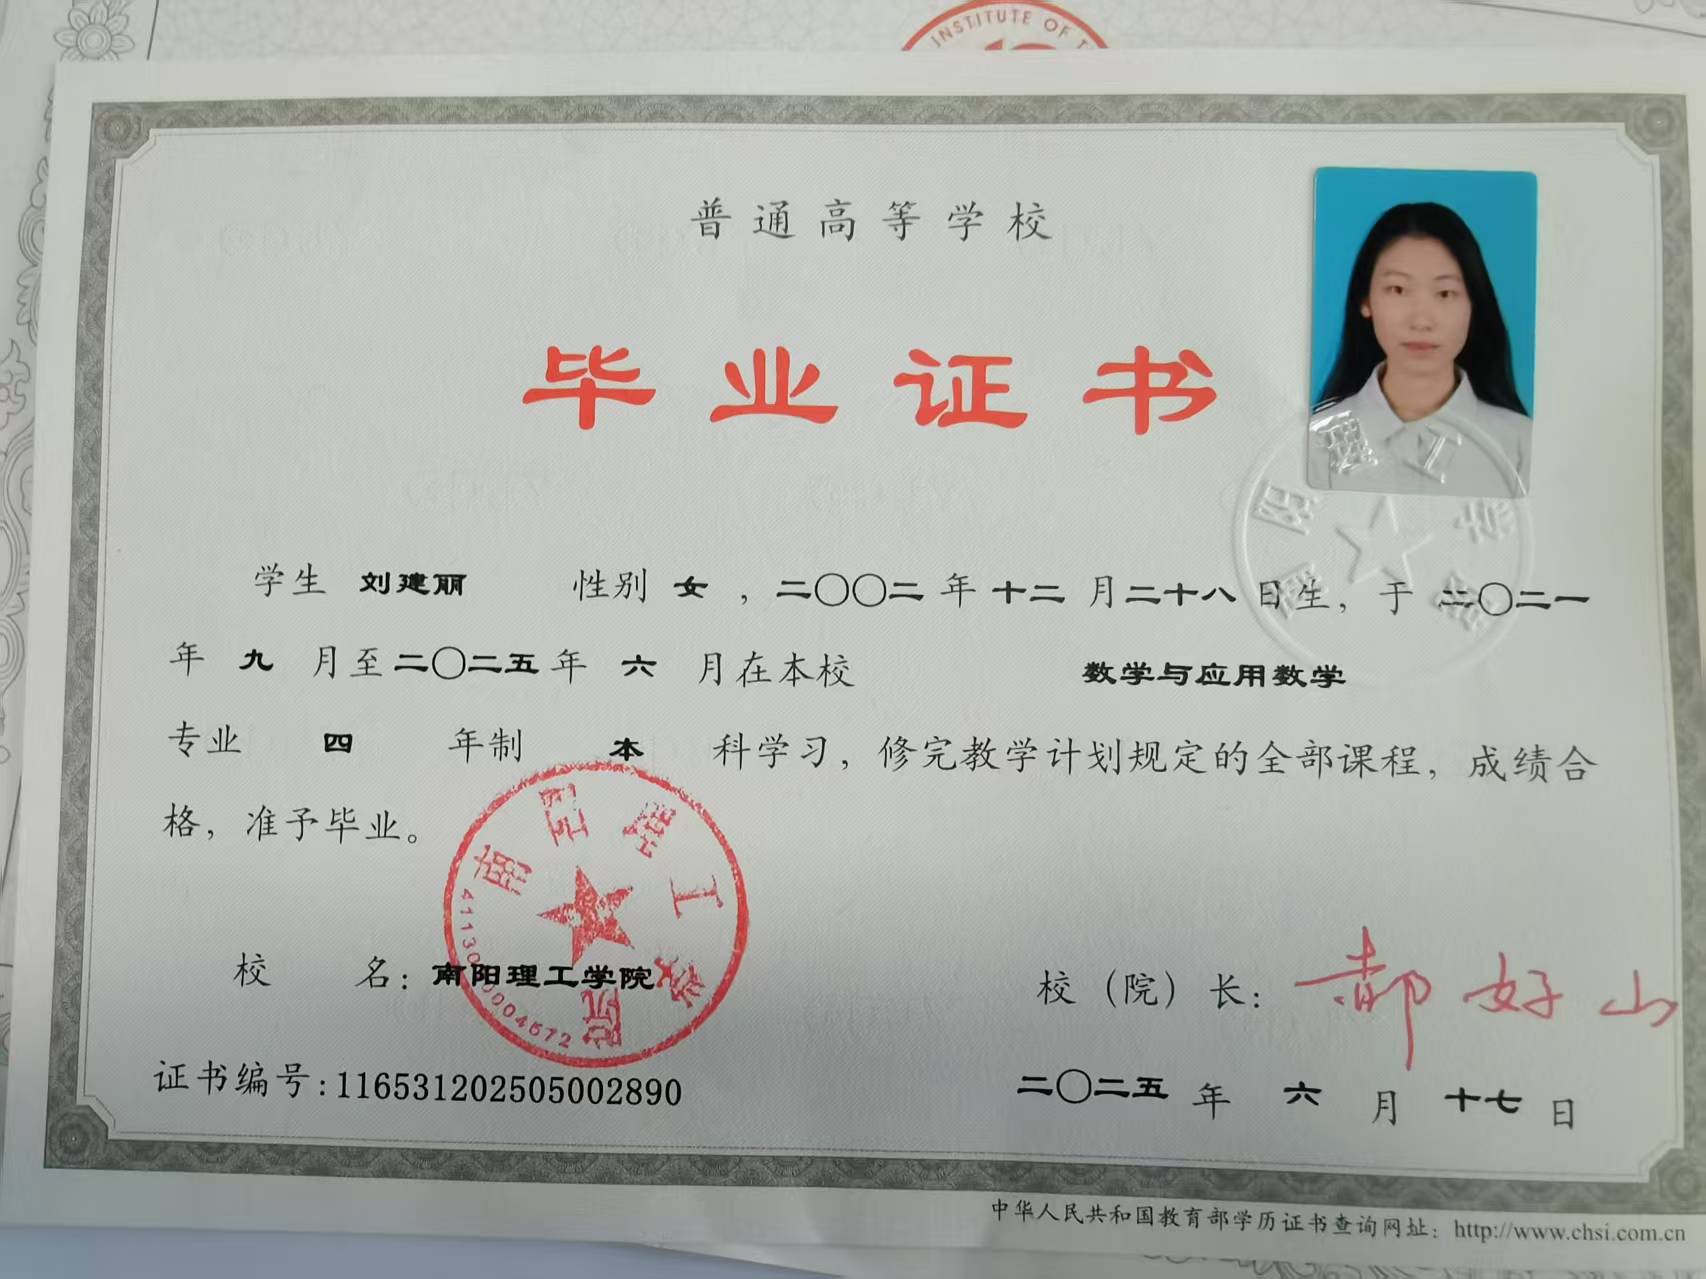 INSTITUTE OF T
普通高等学校
毕业证书
学生 刘建丽 性别 女 ，二〇〇二 年 十二 月 二十八 日生，于 二〇二一
年 九 月至 二〇二五 年 六 月在本校 数学与应用数学
专业 四 年制 本 科学习，修完教学计划规定的全部课程，成绩合
格，准予毕业。
南阳理工学院
校 名：南阳理工学院
校（院）长：郝好山
证书编号：116531202505002890
二〇二五 年 六 月 十七 日
中华人民共和国教育部学历证书查询网址：http://www.chsi.com.cn